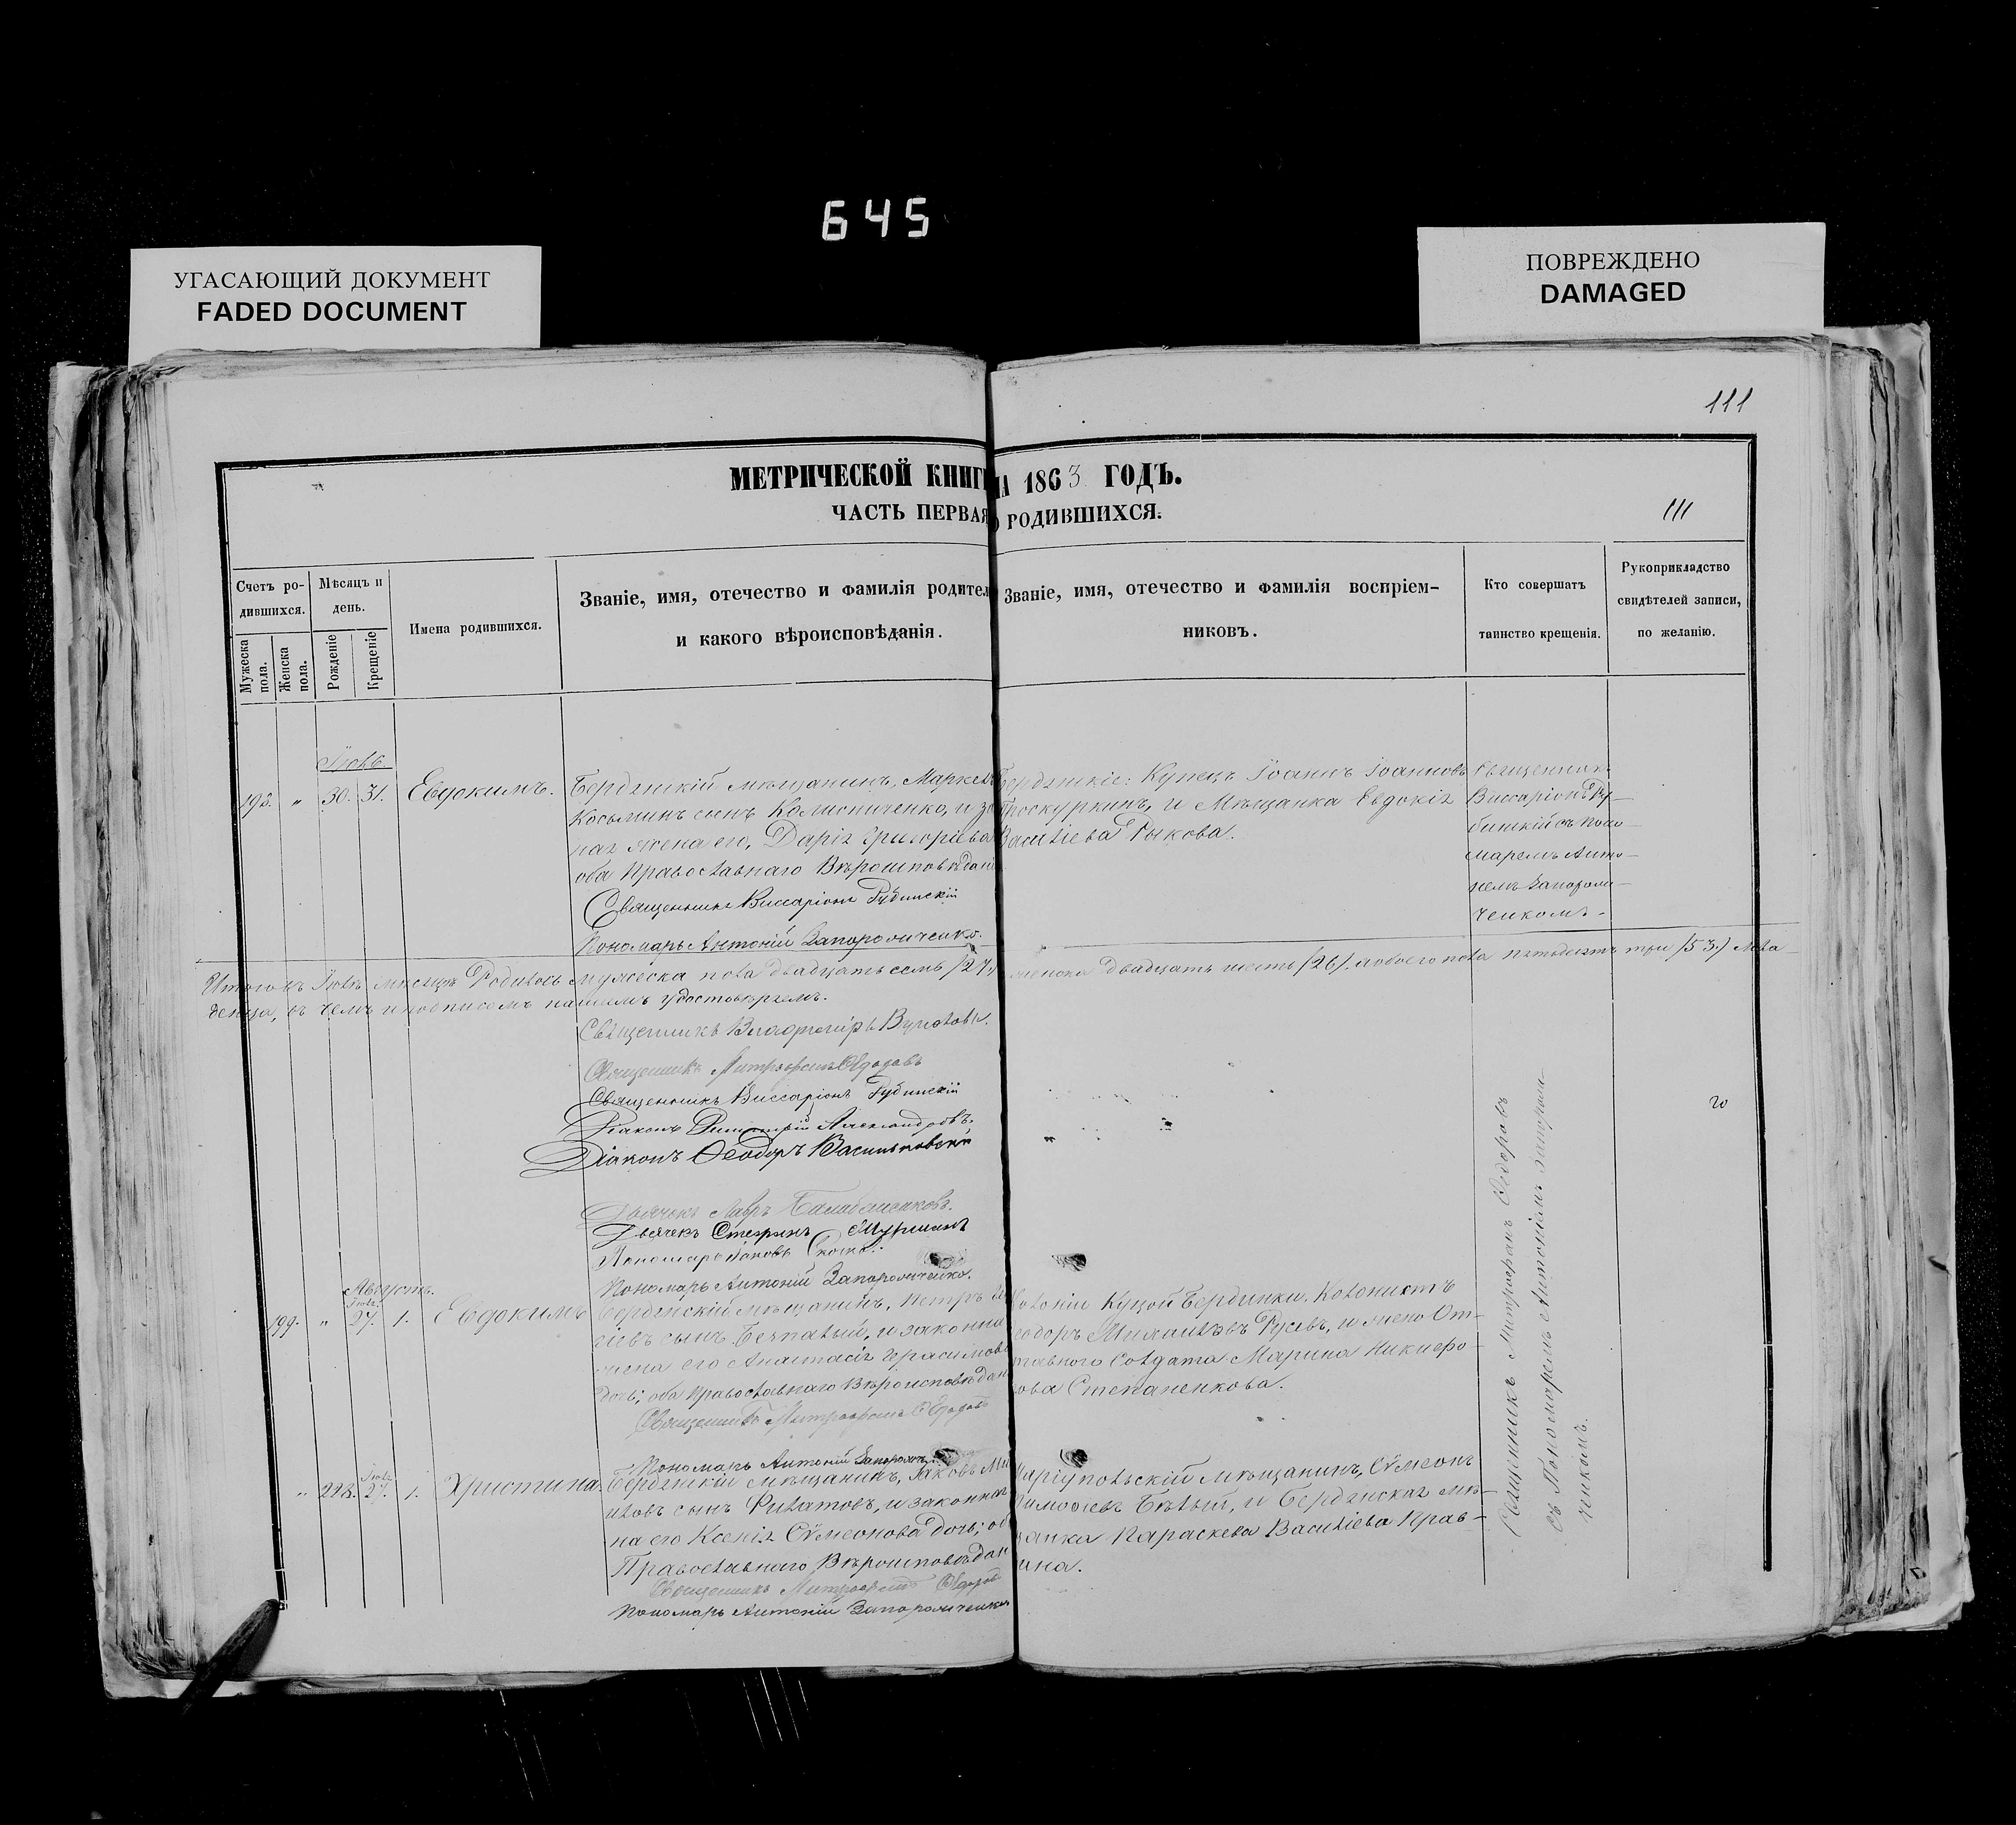 645
УГАСАЮЩИЙ ДОКУМЕНТ
FADED DOCUMENT
ПОВРЕЖДЕНО
DAMAGED
111
МЕТРИЧЕСКОЙ КНИГ НА 1863 ГОДЪ.
ЧАСТЬ ПЕРВАЯ О РОДИВШИХСЯ.
111
Счетъ ро-
дившихся.
Мужеска
пола.
Женска
пола.
Мѣсяцъ и
день.
Рожденіе
Крещеніе
Имена родившихся.
Званіе, имя, отечество и фамилія родител
и какого вѣроисповѣданія.
Званіе, имя, отечество и фамилія воспріем-
никовъ.
Кто совершатъ
таинство крещенія.
Рукоприкладство
свидѣтелей записи,
по желанію.
198. " 30. 31. Евдокимъ.
Бердянскій мѣщанинъ, Маркел
Косьминъ сынъ Колисниченко, и за
ная жена его, Дарія Григоріева
оба Православнаго Вѣроисповѣдані
Священникъ Виссаріонъ Рубинскій
Пономарь Антоній Запорожченко.
Бердянскіе: Купецъ Іоаннъ Іоанновъ
Проскуркинъ, и Мѣщанка Евдокія
Васильева Рыкова.
Священникъ
Виссаріонъ Ру-
бинскій съ поно-
маремъ Анто-
ніемъ Запорож-
ченкомъ.
Итого въ Іюлѣ мѣсяцѣ Родилось мужеска пола двадцать семь /27./ женска двадцать шесть /26/. обоего пола пятьдесятъ три /53./ Мла-
денца, въ чемъ и подписомъ нашимъ удостовѣряемъ.
Священникъ Владиміръ
Священникъ Митрофанъ Ѳедоровъ
Священникъ Виссаріонъ Рубинскій
Діаконъ Димитрій Александровъ.
Діаконъ Ѳеодоръ Васильковскій
Дьячекъ Лавръ
Дьячекъ Стефанъ
Пономарь Іаковъ
Пономарь Антоній Запорожченко.
Августъ.
199. " Іюля 27. 1. Евдокимъ
Бердянскій мѣщанинъ, Петръ
сіевъ сынъ Безпалый, и законна
жена его Анастасія Герасимова
дочь; оба Православнаго Вѣроисповѣдан
Священникъ Митрофанъ Ѳедоровъ
Пономарь Антоній Запорожч
Колоніи Куцой Бердянки, Колонистъ
еодоръ Михайловъ Русевъ, и жена От-
тавного Солдата Марина Никифо-
ова Степаненкова.
" 228. Іюля 27. 1. Христина.
Бердянскій мѣщанинъ, Іаковъ Ми
иловъ сынъ Филатовъ, и законная
на его Ксенія Сѵмеонова дочь; об
Православнаго Вѣроисповѣдан
Священникъ Митрофанъ Ѳедоров
Пономарь Антоній Запорожченко
Маріупольскій мѣщанинъ, Сѵмеонъ
имоѳіевъ Бѣлый, и Бердянская мѣ-
анка Параскева Васильева Прав-
ина.
Священникъ Митрофанъ Ѳедоровъ
съ Пономаремъ Антоніемъ Запорож-
ченкомъ.